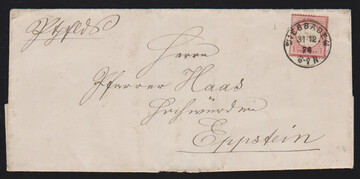 WIESBADEN
31 12
6-7 N
Herrn
Pfarrer Haas
Hochwürden
Eppstein